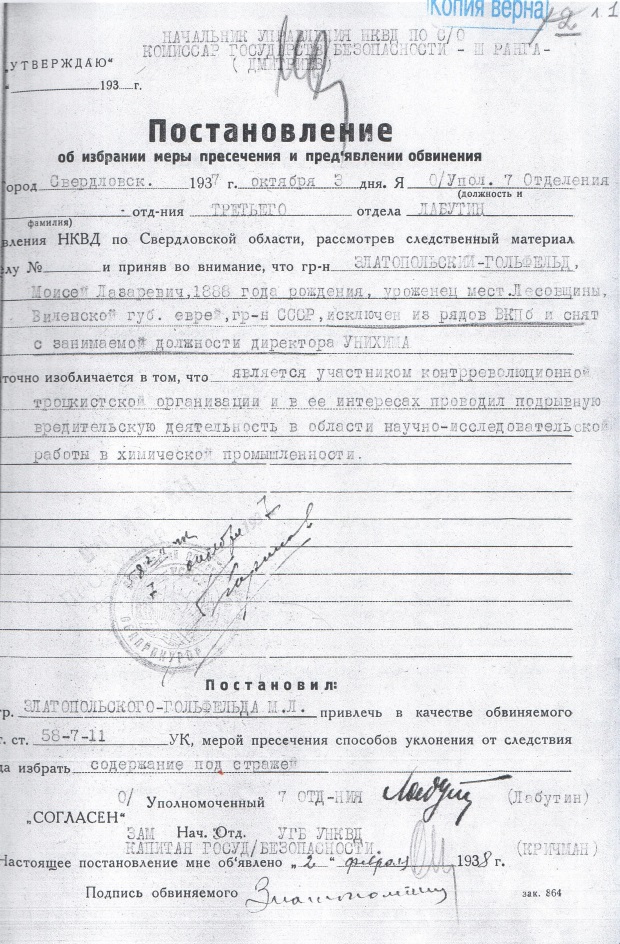 Копия верна
2 л 1
НАЧАЛЬНИК УПРАВЛЕНИЯ НКВД ПО С/О
КОМИССАР ГОСУДАРСТВ БЕЗОПАСНОСТИ - Ш РАНГА-
„УТВЕРЖДАЮ“ ( ДМИТРИЕВ)
„ 193 г.
Постановление
об избрании меры пресечения и пред'явлении обвинения
ород Свердловск. 1937 г. октября 3 дня. Я О/Упол. 7 Отделения
(должность и
- отд-ния ТРЕТЬЕГО отдела ЛАБУТИН
фамилия)
вления НКВД по Свердловской области, рассмотрев следственный материал
елу № и приняв во внимание, что гр-н ЗЛАТОПОЛЬСКИЙ-ГОЛЬФЕЛЬД,
Моисей Лазаревич,1888 года рождения, уроженец мест.Лесовщины,
Виленской губ. еврей,гр-н СССР,исключен из рядов ВКПб и снят
с занимаемой должности директора УНИХИМА
аточно изобличается в том, что является участником контрреволюционной
троцкистской организации и в ее интересах проводил подрывную
вредительскую деятельность в области научно-исследовательской
работы в химической промышленности.
7 октября
Постановил:
гр. ЗЛАТОПОЛЬСКОГО-ГОЛЬФЕЛЬДА М.Л. привлечь в качестве обвиняемого
т. ст. 58-7-11 УК, мерой пресечения способов уклонения от следствия
да избрать содержание под стражей
О/ Уполномоченный 7 ОТД-НИЯ Лабутин (Лабутин)
„СОГЛАСЕН“
ЗАМ Нач. Отд. УГБ УНКВД
КАПИТАН ГОСУД/БЕЗОПАСНОСТИ. (КРИЧМАН)
Настоящее постановление мне об'явлено „2“ февраля 1938 г.
Подпись обвиняемого
зак. 864